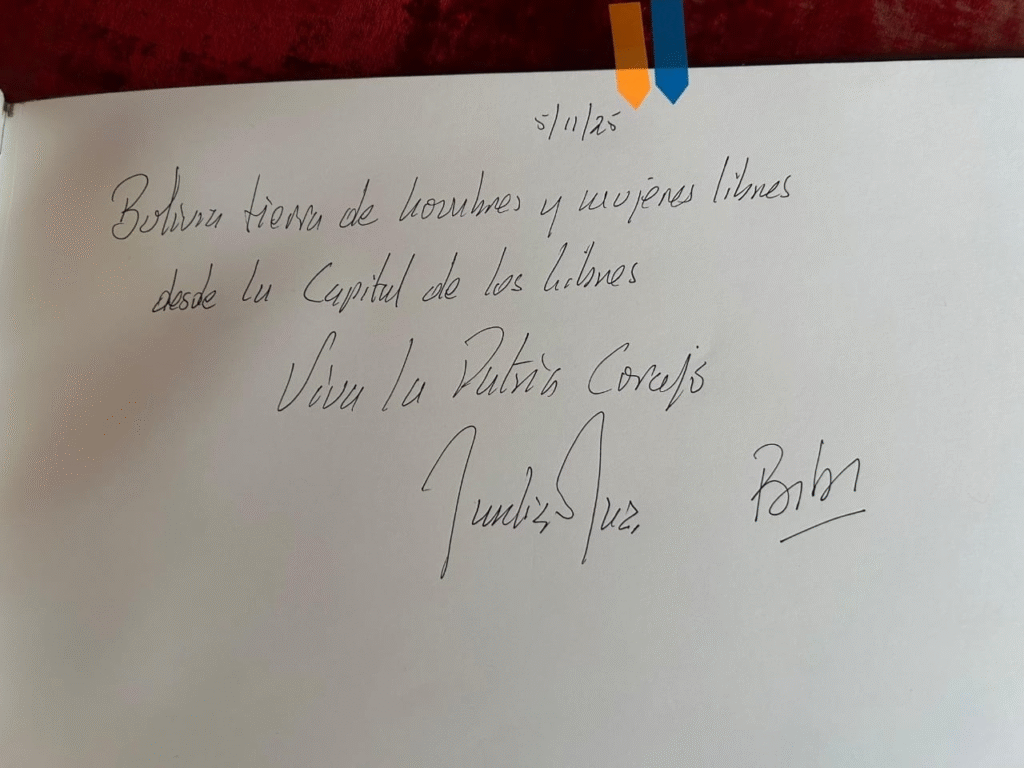 5/11/25
Bolivia tierra de hombres y mujeres libres
desde la Capital de los Libres
Viva la Patria Carajo